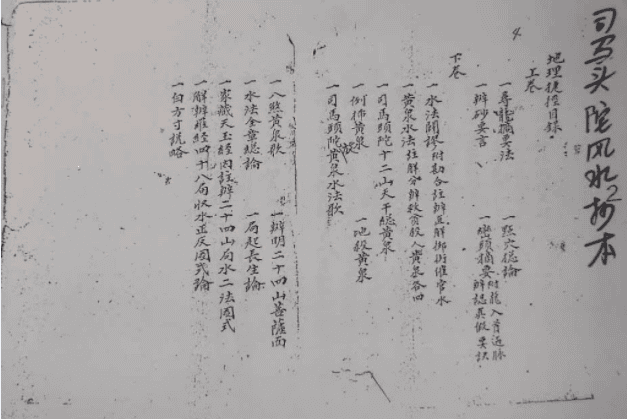 司马头陀风水抄本
2
地理捷徑目錄
上卷
一尋龍摘要法 一點穴總論
一辦砂要言 一巒頭摘要附龍入首近脉辦認真假要訣
下卷
一水法闢謬附勘合註辦正解挪術催官水
一黃泉水法註解分辦救貧殺人黃泉各四
一司馬頭陀十二山天干總黃泉
一例排黃泉 一地殺黃泉
一司馬頭陀黃泉水法歌
一八煞黃泉歌 一辦明二十四山菩薩面
一水法全章總論 一局起長生論
一家藏天玉經內註辦二十四山局水二法圖式
一解辦雅經四十八局收水正反圖式論
一白方寸說略